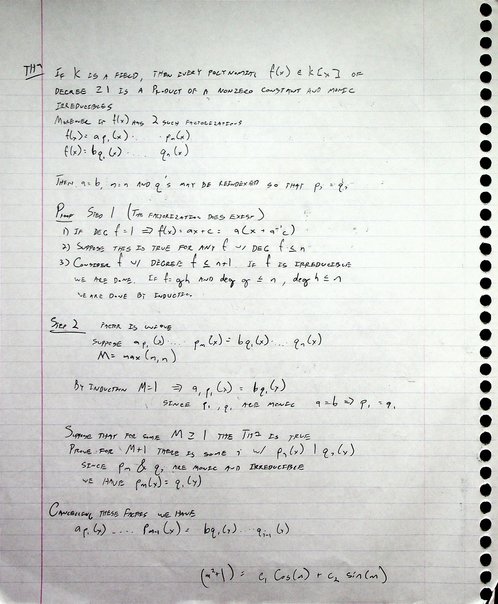 THm IF K IS A FIELD, THEN EVERY POLYNOMIAL f(x) ∈ K[x] OF
DEGREE ≥1 IS A PRODUCT OF A NONZERO CONSTANT AND MONIC
IRREDUCIBLES
MOREOVER IF f(x) HAS 2 SUCH FACTORIZATIONS
f(x) = a p₁(x) ..... pₘ(x)
f(x) = b q₁(x) ..... qₙ(x)
THEN a=b, m=n AND q's MAY BE REINDEXED SO THAT pᵢ = qᵢ
PROOF STEP 1 (THE FACTORIZATION DOES EXIST)
1) IF DEG f = 1 ⇒ f(x) = ax+c = a(x + a⁻¹c)
2) SUPPOSE THIS IS TRUE FOR ANY f w/ DEG f ≤ n
3) CONSIDER f w/ DEGREE f ≤ n+1. IF f IS IRREDUCIBLE
WE ARE DONE. IF f = gh AND deg g ≤ n, deg h ≤ n
WE ARE DONE BY INDUCTION
STEP 2 FACTOR IS UNIQUE
SUPPOSE a p₁(x) ..... pₘ(x) = b q₁(x) ..... qₙ(x)
M = max(m,n)
BY INDUCTION M=1 ⇒ a p₁(x) = b q₁(x)
SINCE p₁, q₁ ARE MONIC a=b ⇒ p₁ = q₁
SUPPOSE THAT FOR SOME M ≥ 1 THE THm IS TRUE
PROVE FOR M+1 THERE IS SOME i w/ pₘ(x) | qᵢ(x)
SINCE pₘ & qᵢ ARE MONIC AND IRREDUCIBLE
WE HAVE pₘ(x) = qᵢ(x)
CANCELLING THESE FACTORS WE HAVE
a p₁(x) ..... pₘ₋₁(x) = b q₁(x) ..... qₙ₋₁(x)
= c₁ cos(m) + c₂ sin(m)